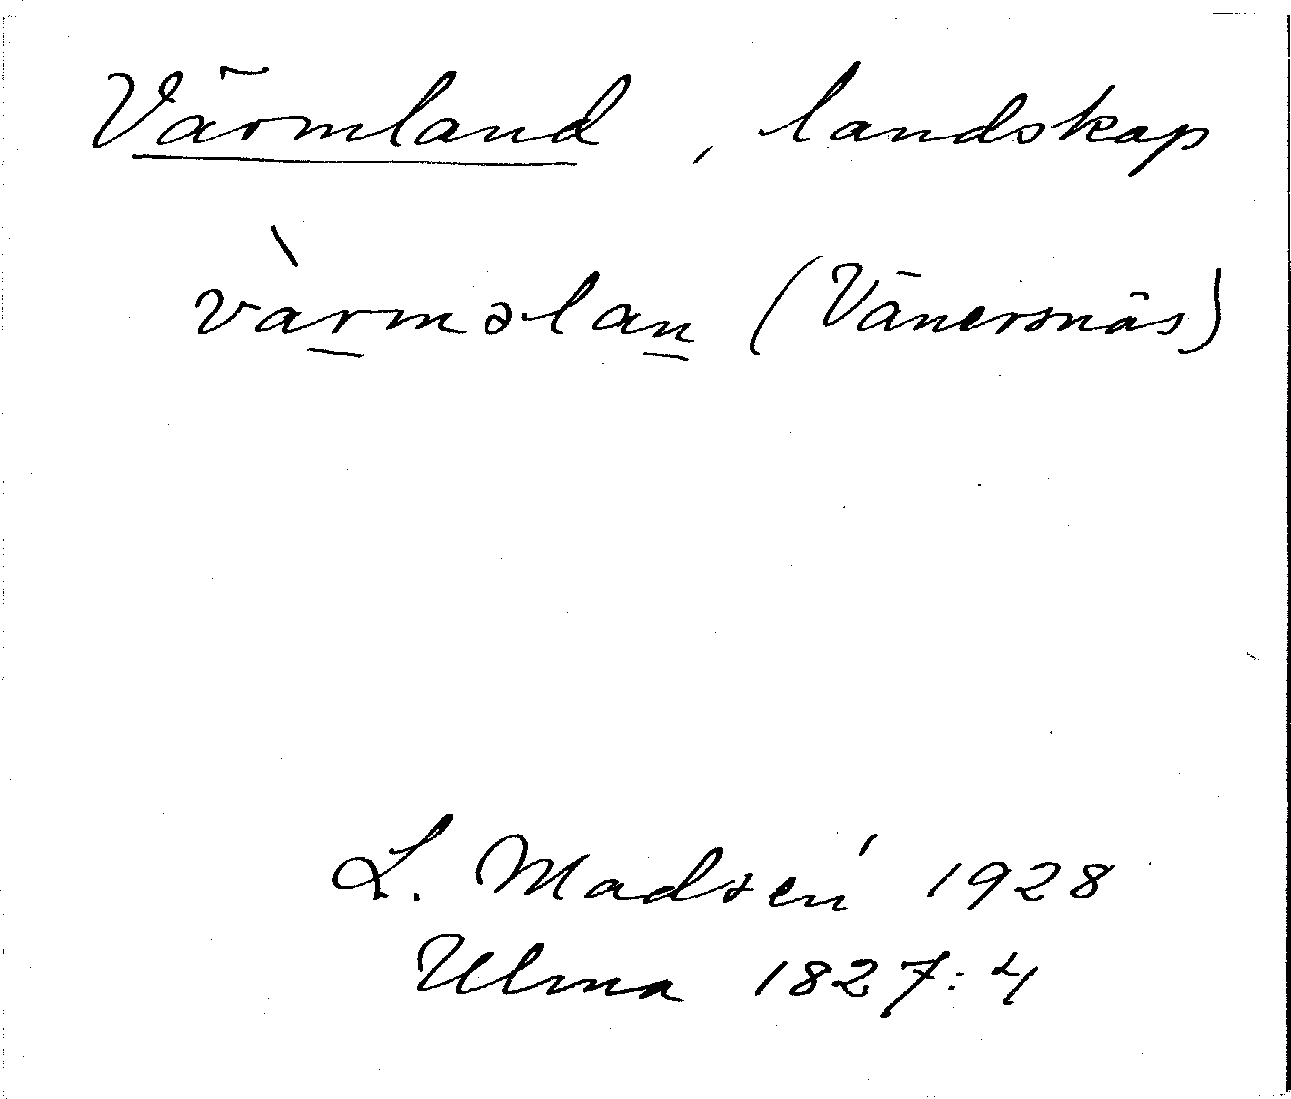 Värmland, landskap
vàrməlan (Vänersnäs)
L. Madsén 1928
Ulma 1827:4